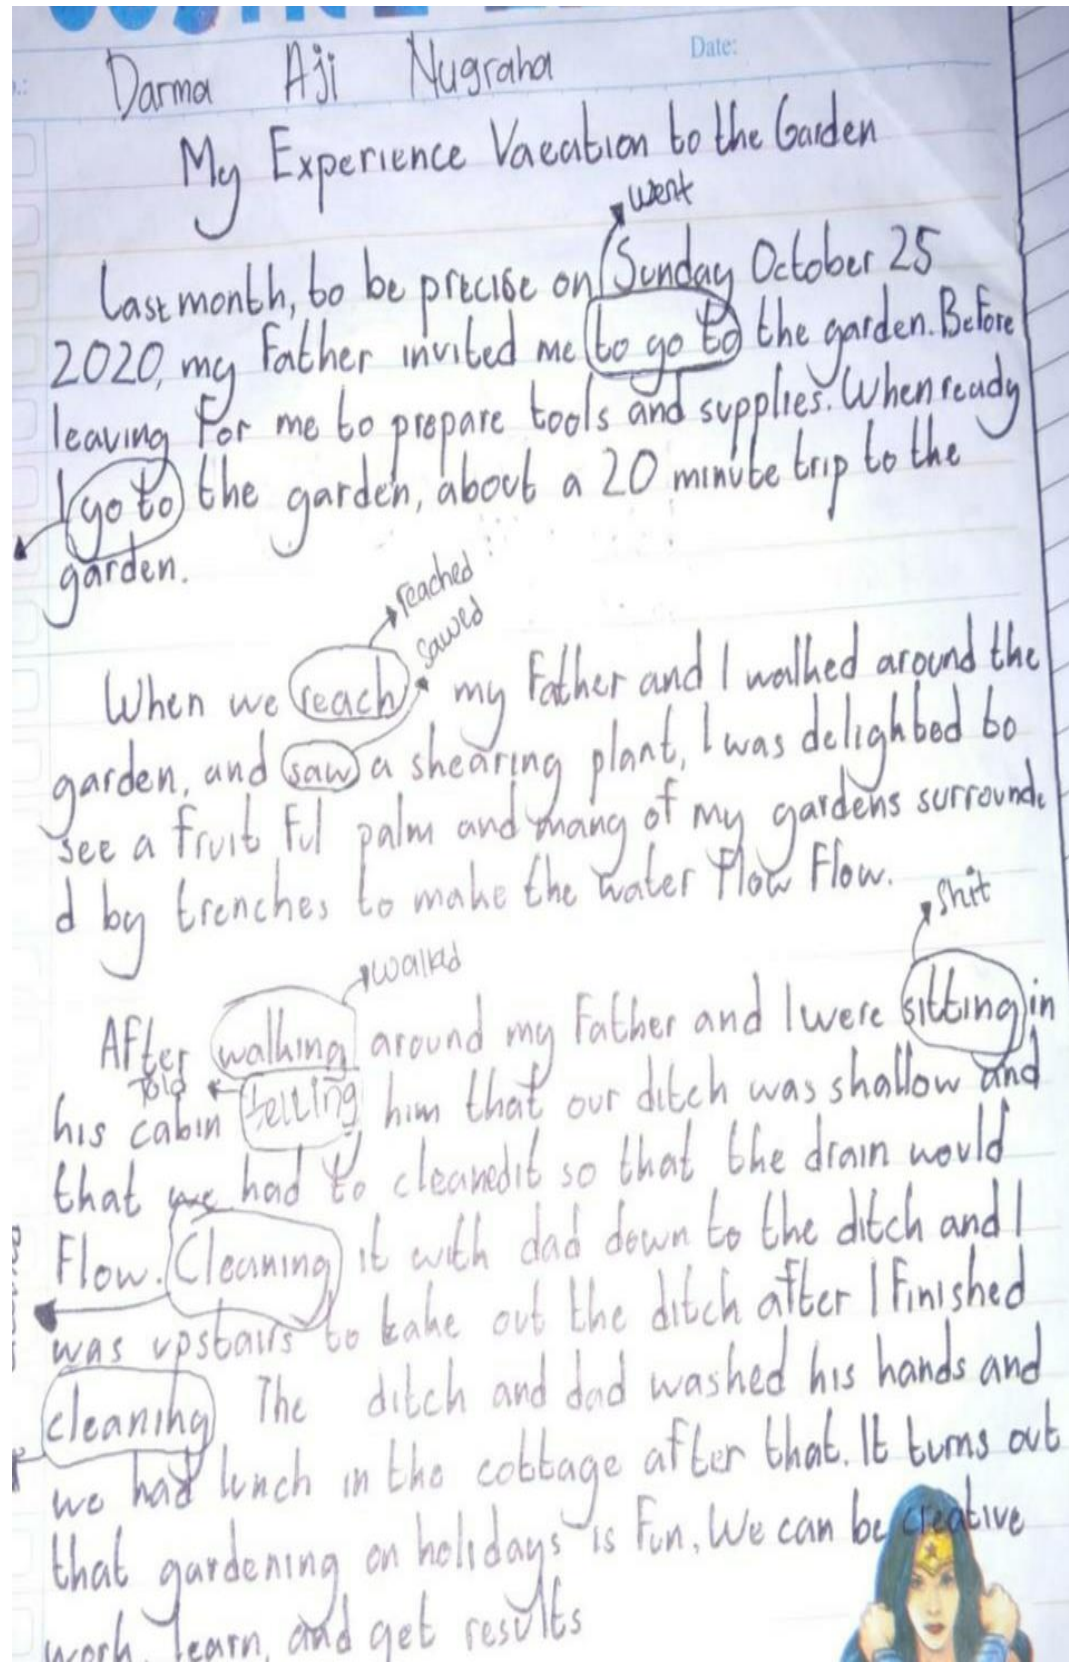 Date:
Darma Aji Nugraha
My Experience Vacation to the Garden
went
Last month, to be precise on Sunday October 25
2020, my Father invited me to go to the garden. Before
leaving For me to prepare tools and supplies. When ready
I go to the garden, about a 20 minute trip to the
garden.
reached
sawed
When we reach my Father and I walked around the
garden, and saw a shearing plant, I was delighted to
see a fruit Ful palm and many of my gardens surrounde
d by trenches to make the water Flow Flow.
shit
walked
AFter walking around my Father and I were sitting in
Told
his cabin telling him that our ditch was shallow and
that we had to cleanedit so that the drain would
Flow. Cleaning it with dad down to the ditch and I
was upstairs to take out the ditch after I Finished
cleaning The ditch and dad washed his hands and
we had lunch in the cottage after that. It turns out
that gardening on holidays is Fun. We can be creative
work, learn, and get results